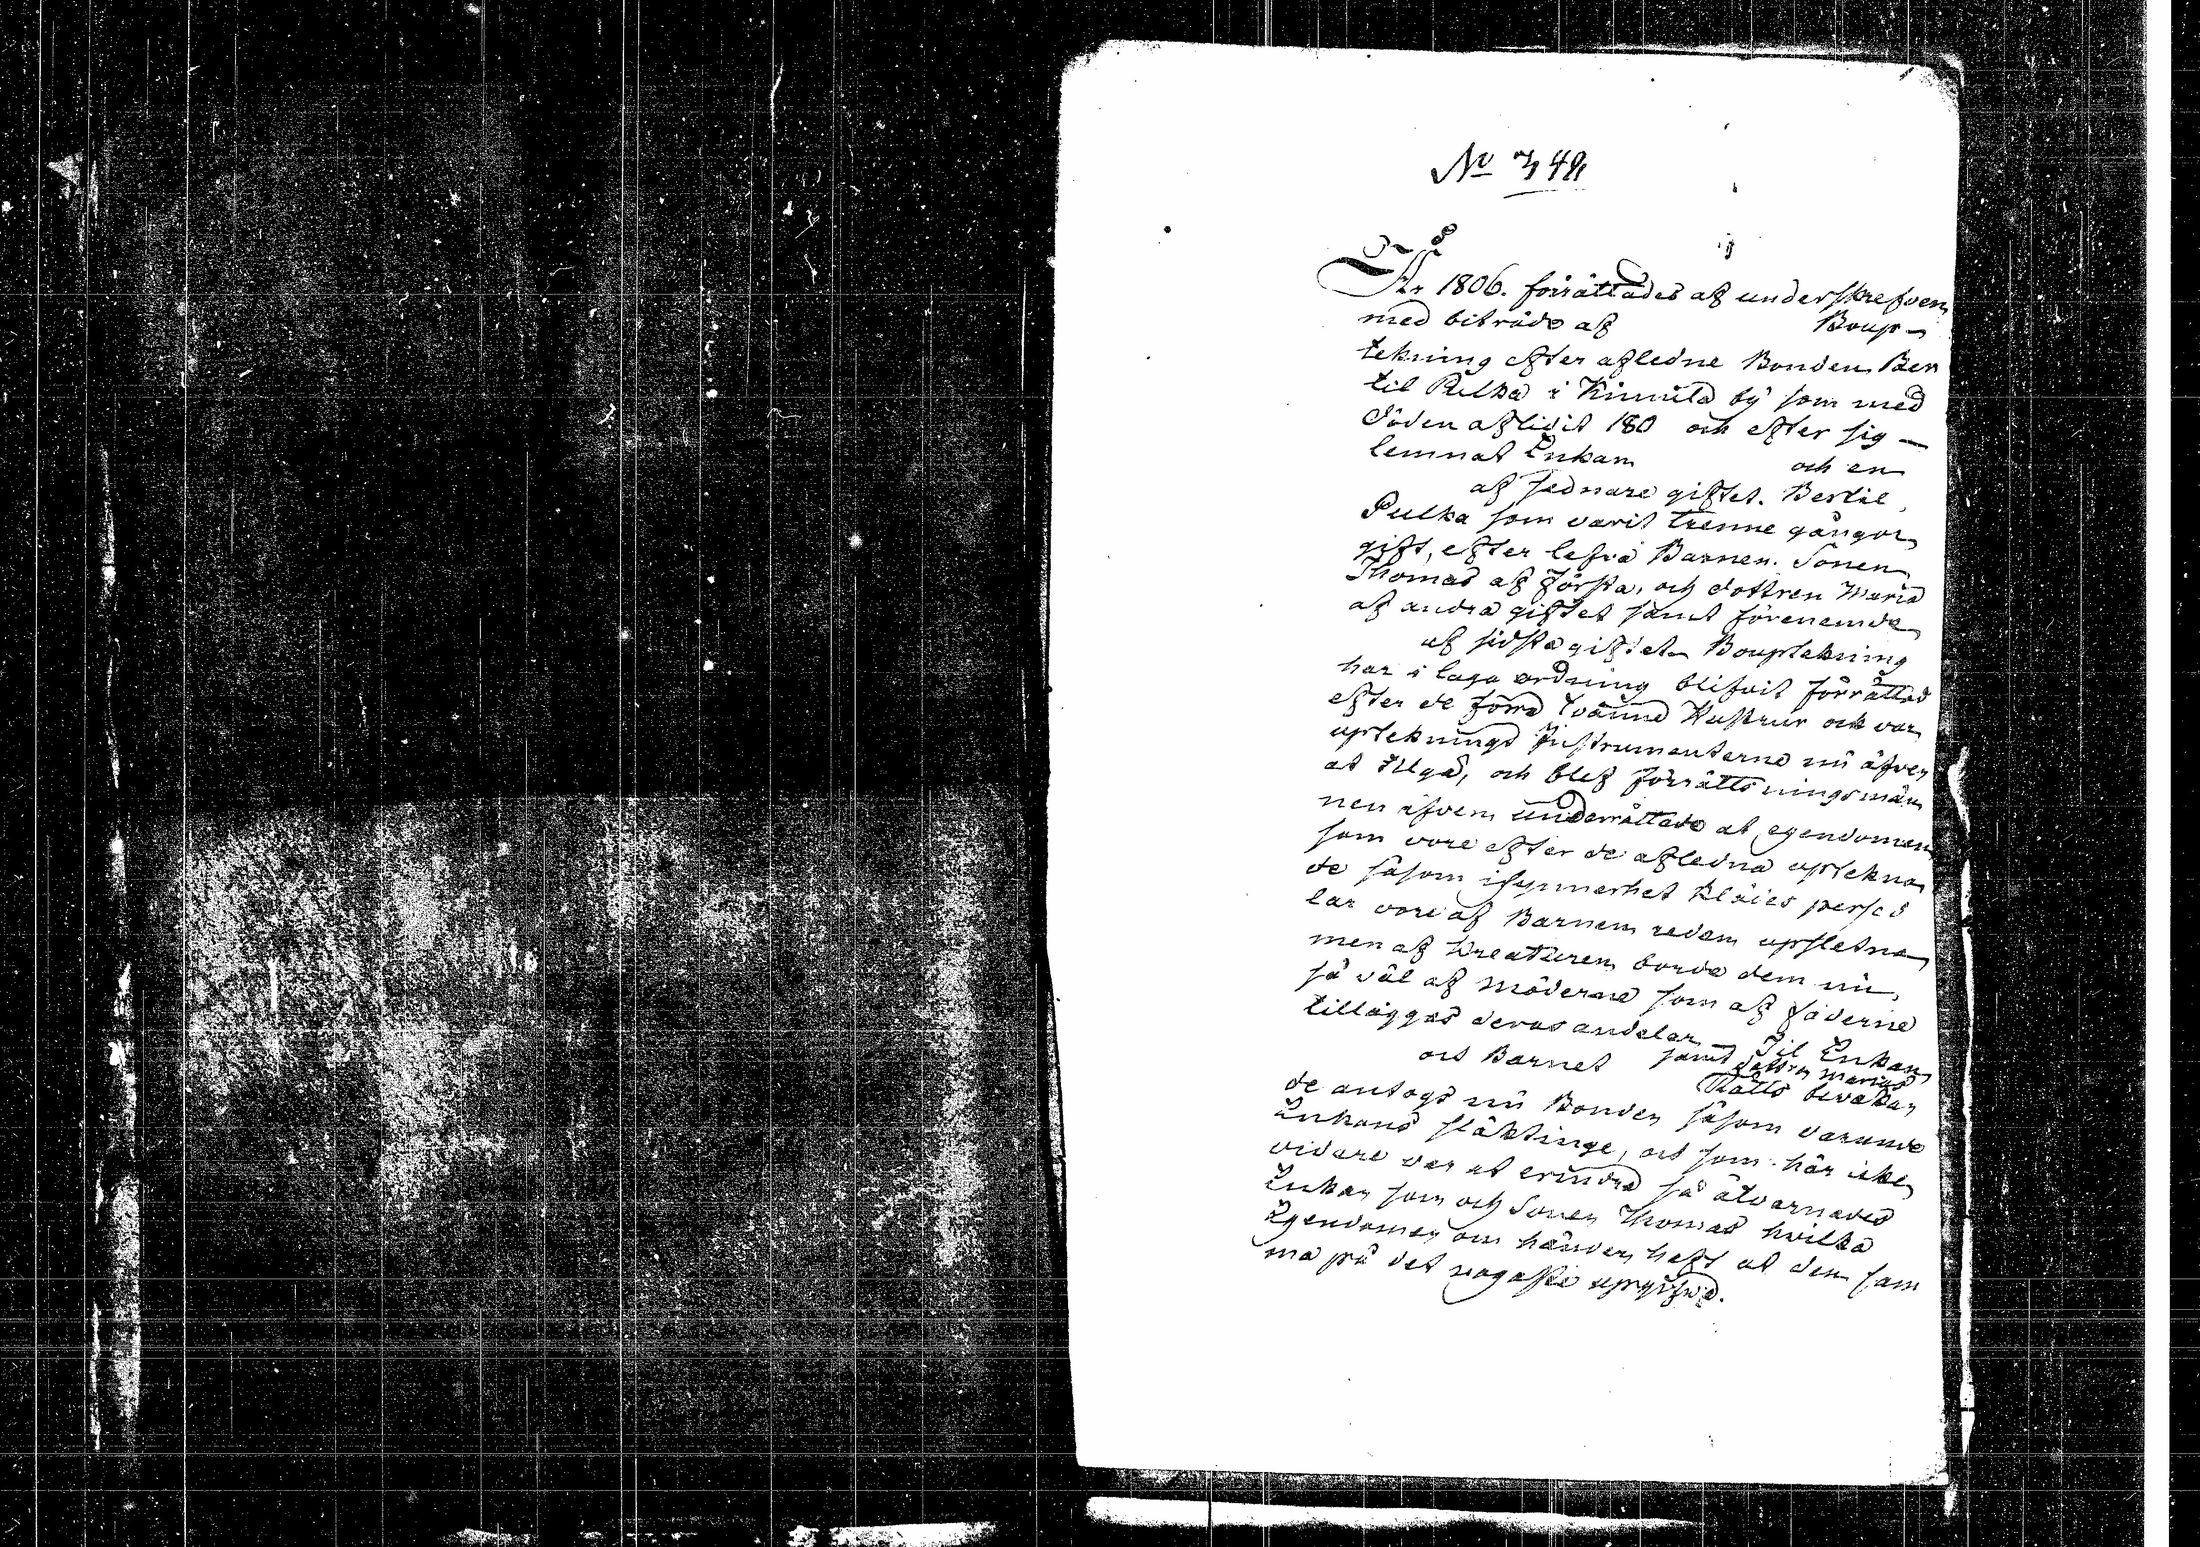 No 348
År 1806. förrättades af underskrefven
med biträde af Boup-
tekning efter afledne Bonden Ber
til Pulka i Kimula bÿ som med
döden aflidit 180 och efter sig -
lemnat Enkan och en
af sednare giftet. Bertil
Pulka som varit trenne gångor
gift, efter lefva Barnen. Sonen
Thomas af första, och dottren Maria
af andra giftet samt förenemde
af sidsta giftet. Bouptekning
har i laga ordning blifvit förrättad
efter de förra tvänne Hustrur och var
upteknings Instrumenterne nu äfven
at tilgå, och blef förrättningsmän
nen äfven underrättade at egendomen
som vore efter de afledna uptekna
de såsom isynnerhet Klädes persed
lar vore af Barnen redan upsletna
men af Kreaturen borde dem nu
så väl af möderne som af fäderne
tilläggas deras andelar Til Enkan
och Barnet samt dottren Marias
Rätts bevakan
de antogs nu Bonden såsom varande
Enkans släktinge, och som här icke
vidare var at erindra så åtvarnades
Enkan som och Sonen Thomas hvilka
Egendomen om händer haft at den sam
ma på det nogaste upgifva.